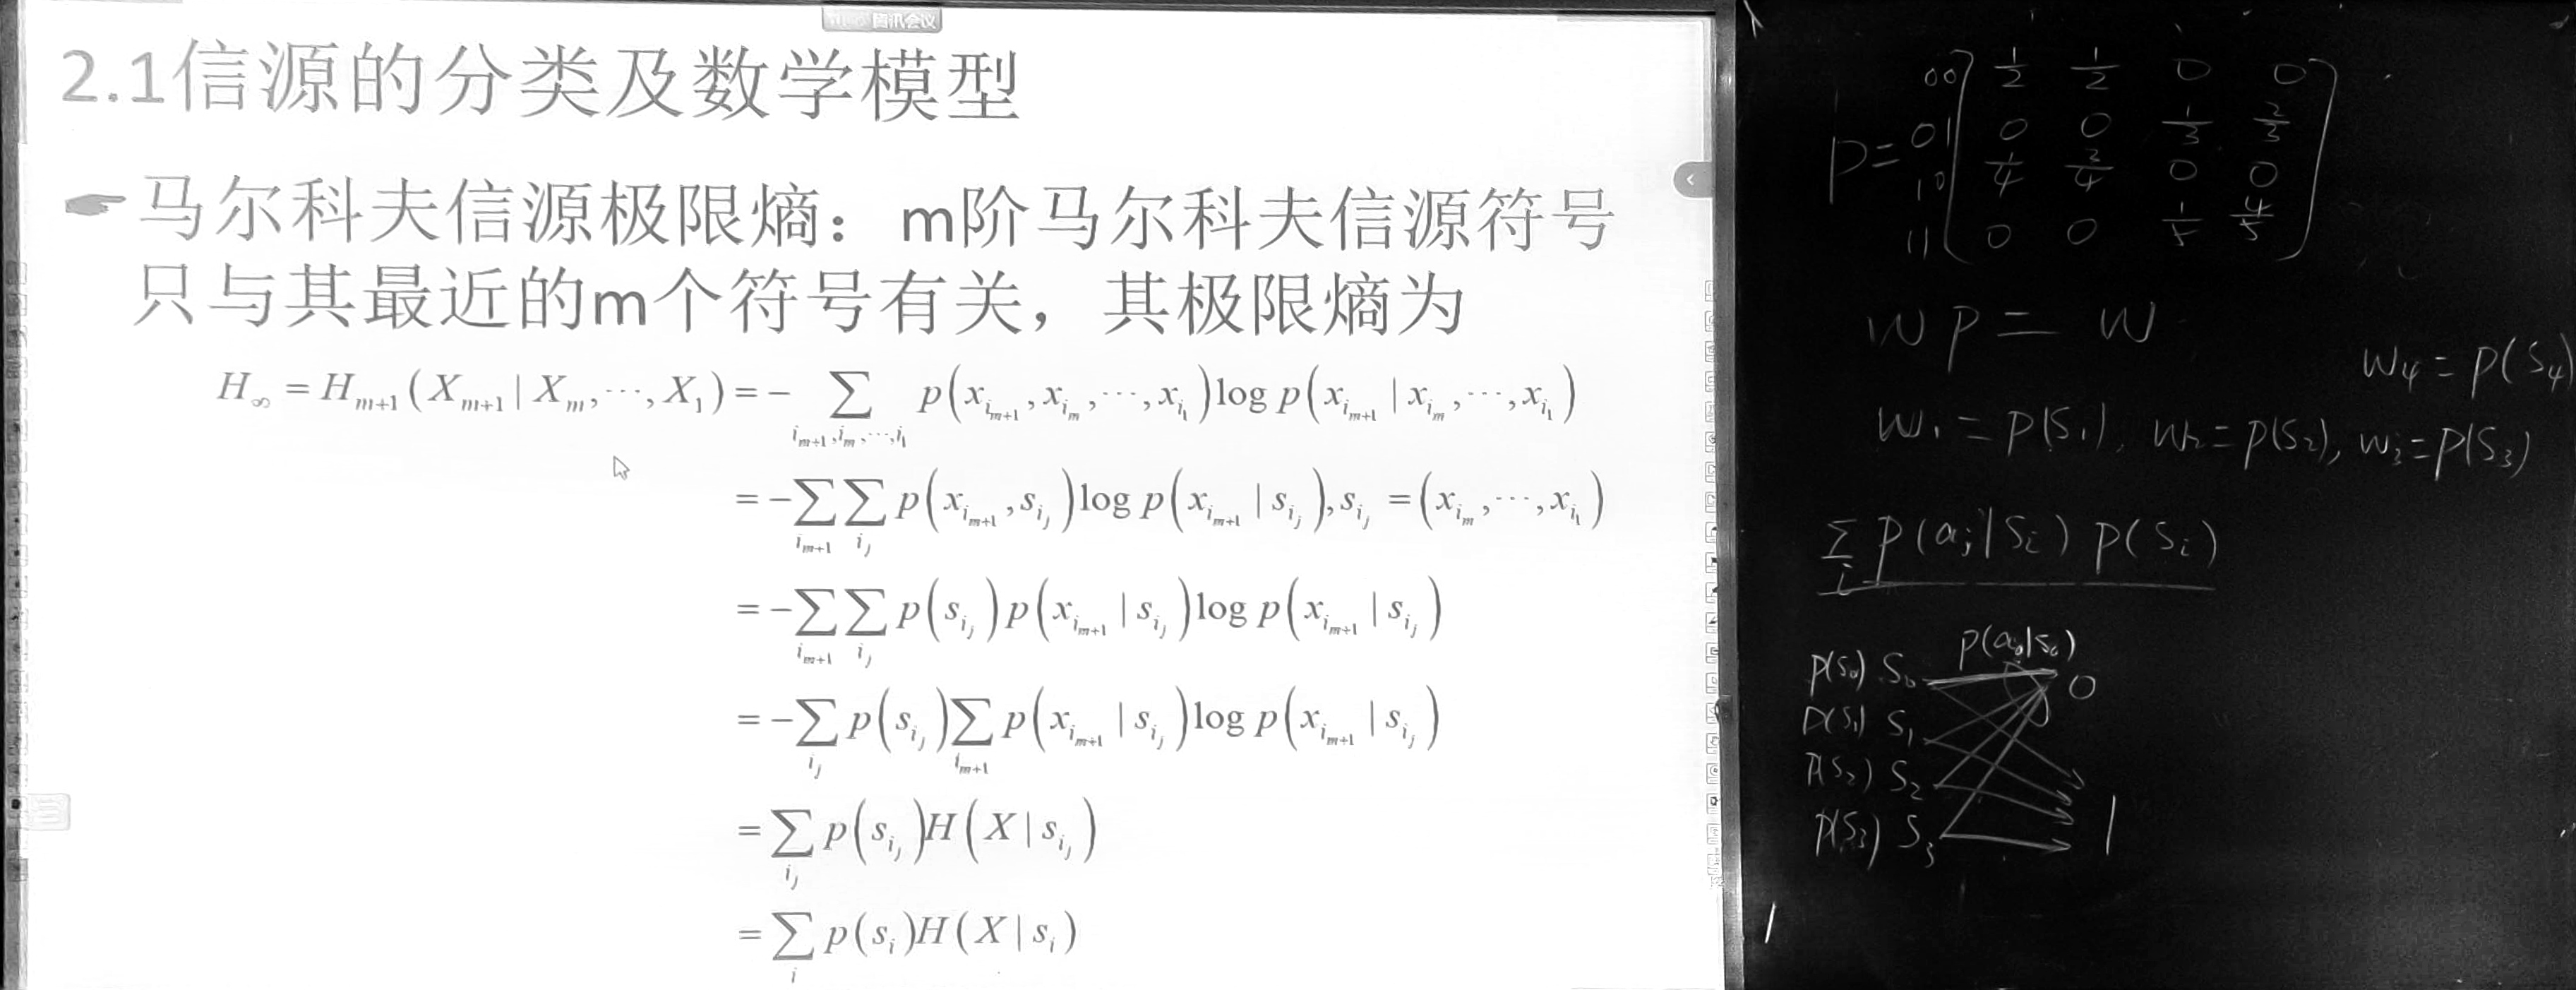 腾讯会议
2.1信源的分类及数学模型
马尔科夫信源极限熵：m阶马尔科夫信源符号
只与其最近的m个符号有关，其极限熵为
H∞ = Hm+1(Xm+1 | Xm, ⋯, X1) = − ∑_{i_{m+1}, i_m, ⋯, i_1} p(x_{i_{m+1}}, x_{i_m}, ⋯, x_{i_1}) log p(x_{i_{m+1}} | x_{i_m}, ⋯, x_{i_1})
= −∑_{i_{m+1}} ∑_{i_j} p(x_{i_{m+1}}, s_{i_j}) log p(x_{i_{m+1}} | s_{i_j}), s_{i_j} = (x_{i_m}, ⋯, x_{i_1})
= −∑_{i_{m+1}} ∑_{i_j} p(s_{i_j}) p(x_{i_{m+1}} | s_{i_j}) log p(x_{i_{m+1}} | s_{i_j})
= −∑_{i_j} p(s_{i_j}) ∑_{i_{m+1}} p(x_{i_{m+1}} | s_{i_j}) log p(x_{i_{m+1}} | s_{i_j})
= ∑_{i_j} p(s_{i_j}) H(X | s_{i_j})
= ∑_i p(s_i) H(X | s_i)
00 1/2 1/2 0 0
P = 01 0 0 1/3 2/3
10 1/4 2/4 0 0
11 0 0 1/5 4/5
W P = W
W4 = p(S4)
W1 = p(S1), W2 = p(S2), W3 = p(S3)
∑_i p(aj|Si) p(Si)
p(a0|S0)
p(S0) S0 0
p(S1) S1
p(S2) S2
p(S3) S3 1